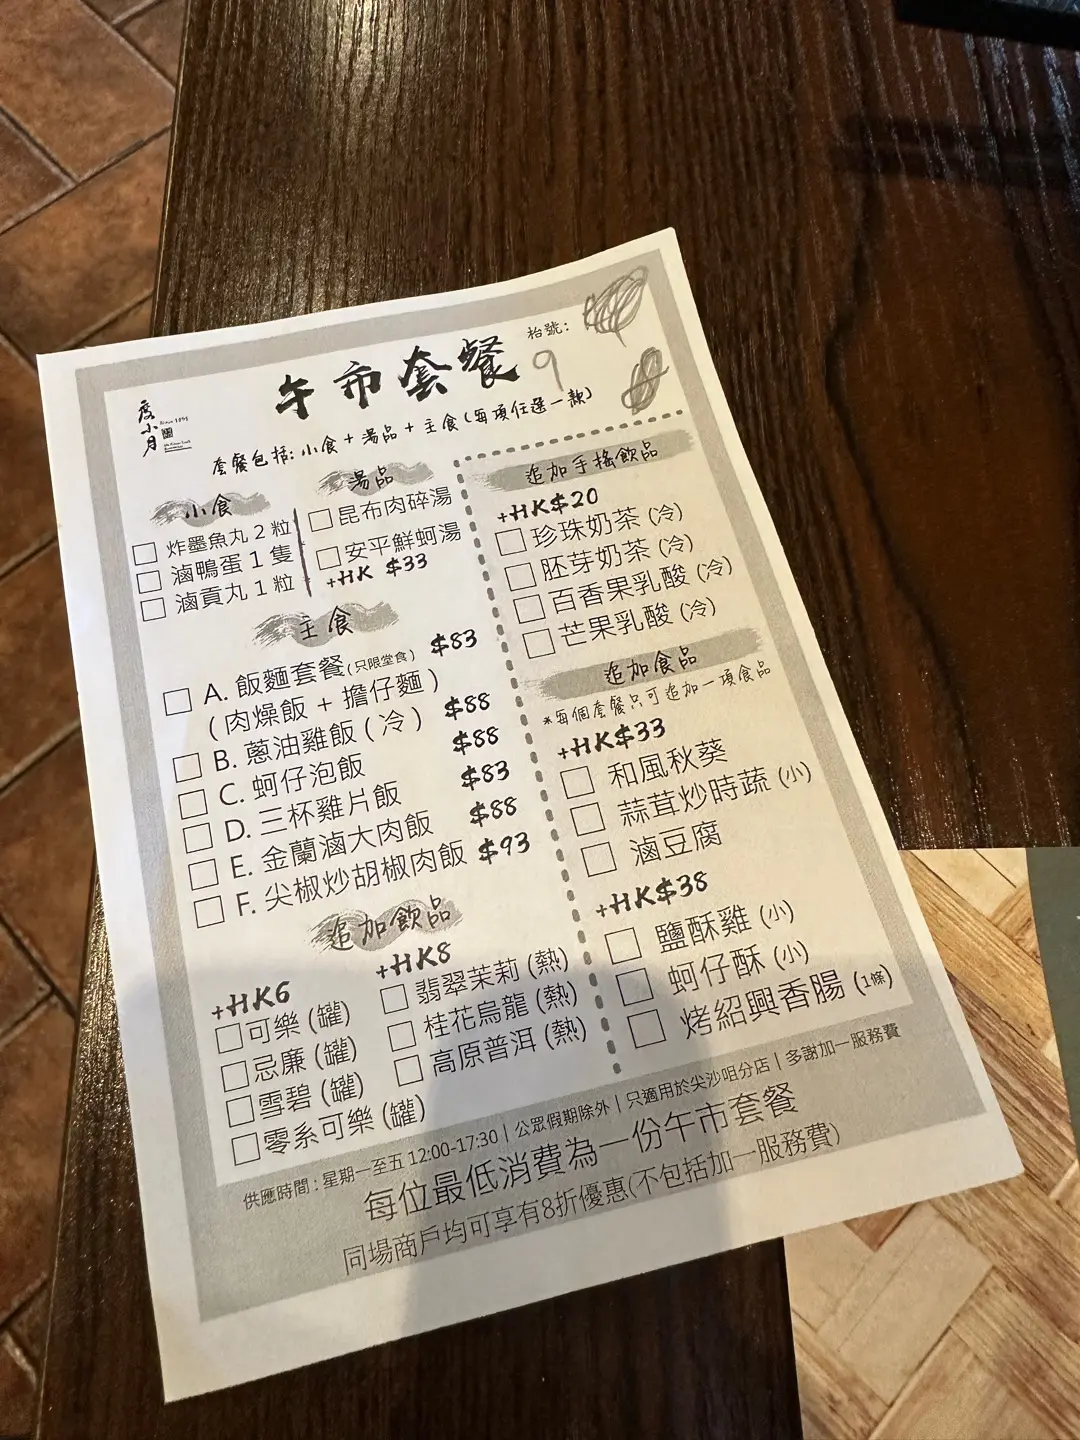 枱號:
9
午市套餐
度小月
Since 1895
套餐包括: 小食 + 湯品 + 主食 (每項任選一款)
小食
炸墨魚丸 2 粒
滷鴨蛋 1 隻
滷貢丸 1 粒
湯品
昆布肉碎湯
安平鮮蚵湯
+HK $33
主食
A. 飯麵套餐 (只限堂食) $83
( 肉燥飯 + 擔仔麵 )
B. 蔥油雞飯 ( 冷 ) $88
C. 蚵仔泡飯 $88
D. 三杯雞片飯 $83
E. 金蘭滷大肉飯 $88
F. 尖椒炒胡椒肉飯 $93
追加飲品
+HK6
可樂 (罐)
忌廉 (罐)
雪碧 (罐)
零系可樂 (罐)
+HK8
翡翠茉莉 (熱)
桂花烏龍 (熱)
高原普洱 (熱)
追加手搖飲品
+HK$20
珍珠奶茶 (冷)
胚芽奶茶 (冷)
百香果乳酸 (冷)
芒果乳酸 (冷)
追加食品
*每個套餐只可追加一項食品
+HK$33
和風秋葵
蒜茸炒時蔬 (小)
滷豆腐
+HK$38
鹽酥雞 (小)
蚵仔酥 (小)
烤紹興香腸 (1條)
供應時間 : 星期一至五 12:00-17:30 | 公眾假期除外 | 只適用於尖沙咀分店 | 多謝加一服務費
每位最低消費為一份午市套餐
同場商戶均可享有8折優惠(不包括加一服務費)